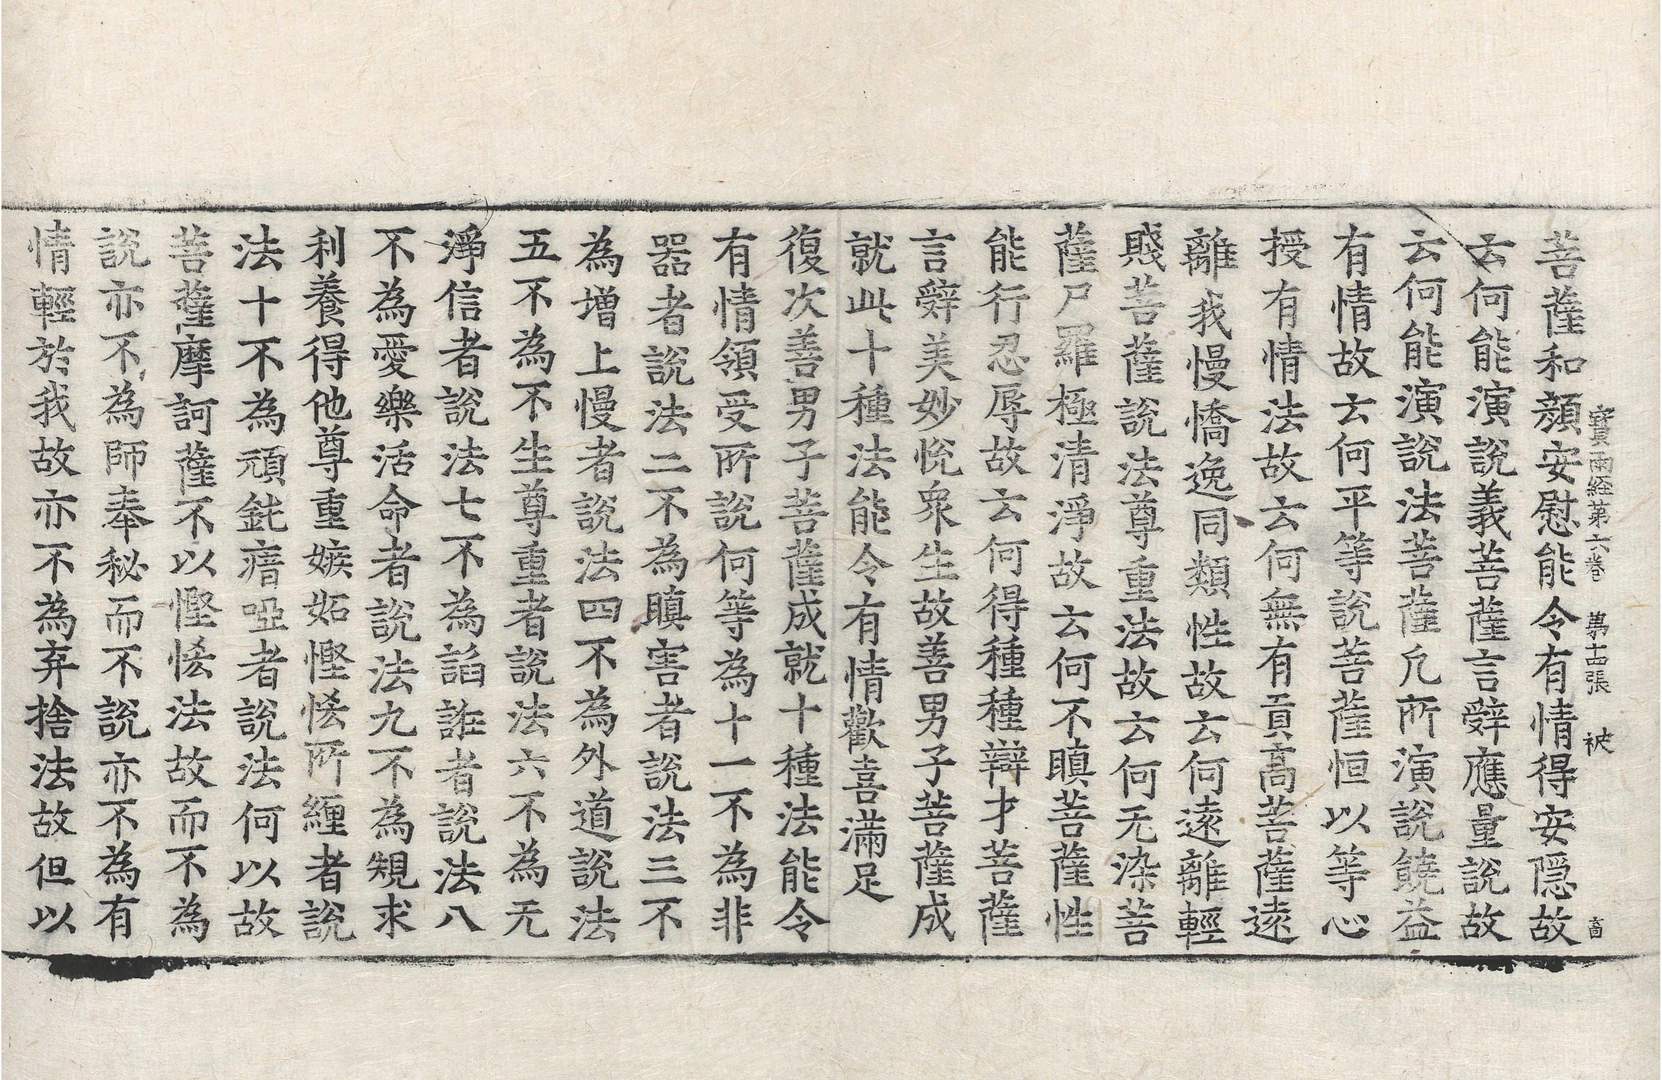 寶雨経第六卷 第十四張 被
菩薩和顔安慰能令有情得安隠故
云何能演說義菩薩言辝應量說故
云何能演說法菩薩凡所演說饒益
有情故云何平等說菩薩恒以等心
授有情法故云何無有貢高菩薩遠
離我慢憍逸同類性故云何遠離輕
賤菩薩說法尊重法故云何无染菩
薩尸羅極清淨故云何不瞋菩薩性
能行忍辱故云何得種種辯才菩薩
言辝美妙悅衆生故善男子菩薩成
就此十種法能令有情歡喜滿足
復次善男子菩薩成就十種法能令
有情領受所說何等為十一不為非
器者說法二不為瞋害者說法三不
為增上慢者說法四不為外道說法
五不為不生尊重者說法六不為无
淨信者說法七不為諂誑者說法八
不為愛樂活命者說法九不為規求
利養得他尊重嫉妬慳悋所纏者說
法十不為頑鈍瘖啞者說法何以故
菩薩摩訶薩不以慳悋法故而不為
說亦不為師奉秘而不說亦不為有
情輕於我故亦不為弃捨法故但以